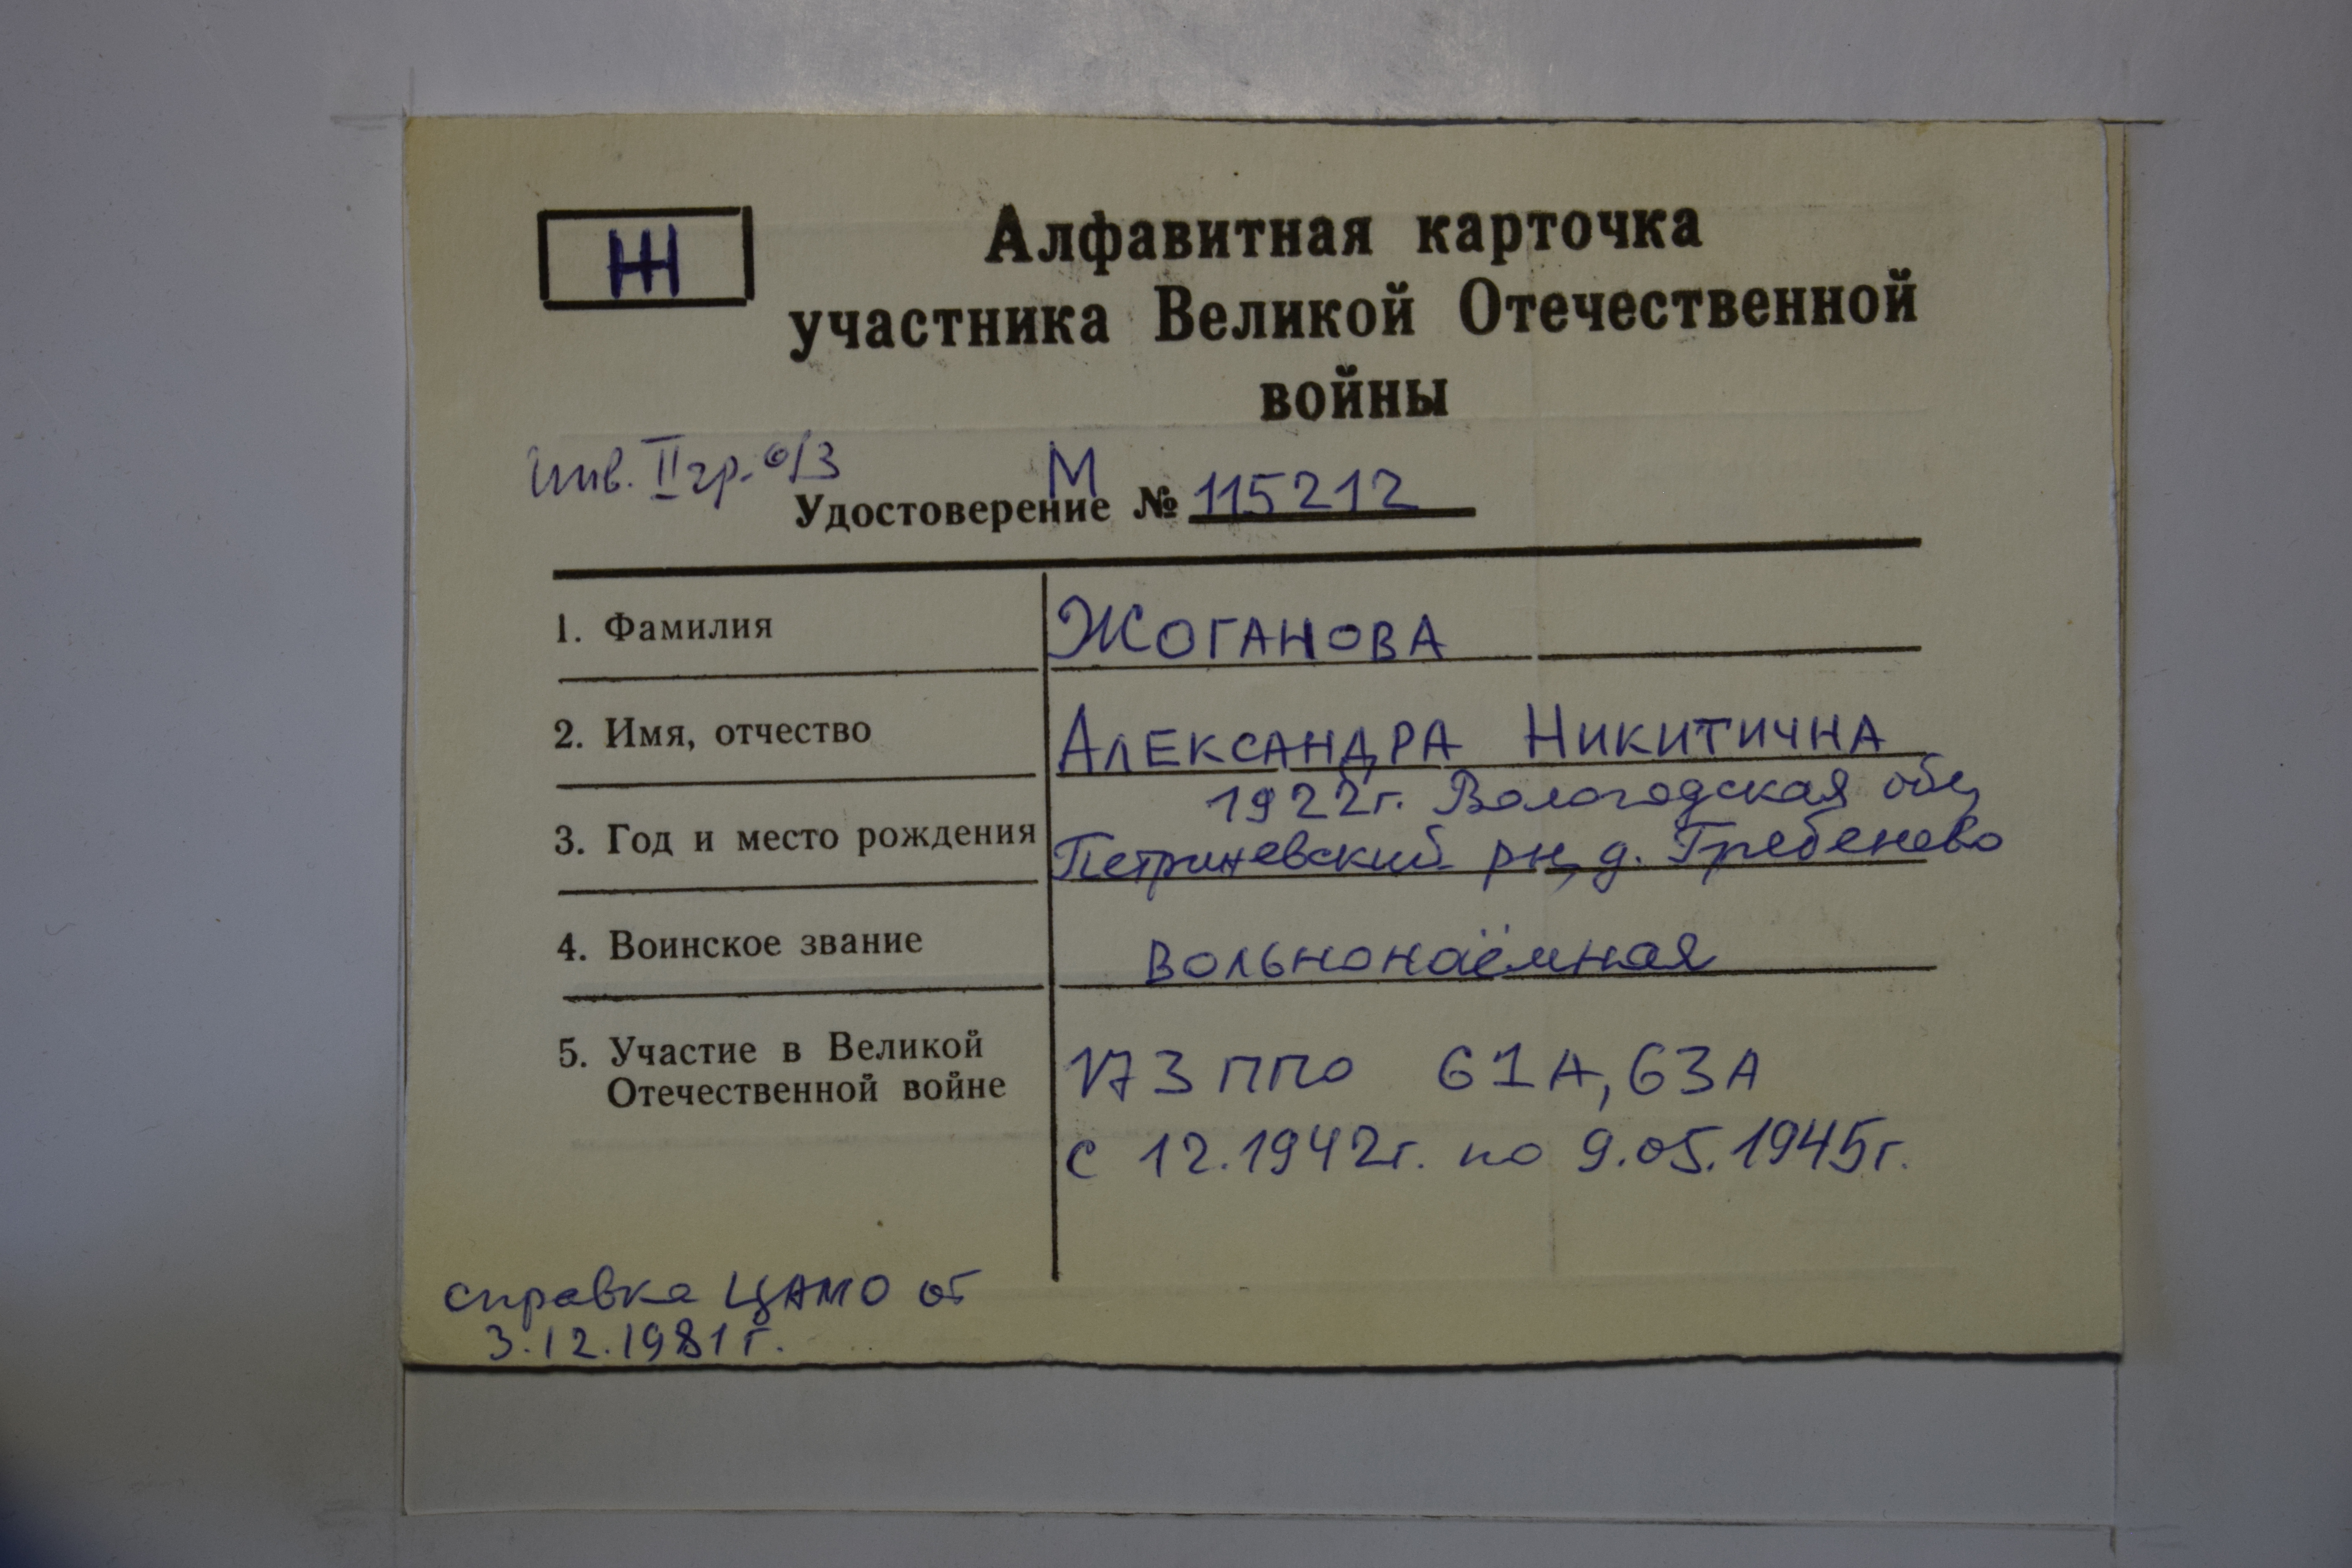 Ж
Алфавитная карточка
участника Великой Отечественной
войны
инв. II гр. о/з
М
Удостоверение № 115212
1. Фамилия ЖОГАНОВА
2. Имя, отчество АЛЕКСАНДРА НИКИТИЧНА
1922г. Вологодская обл,
3. Год и место рождения Петриневский рн, д. Гребенево
4. Воинское звание вольнонаёмная
5. Участие в Великой
Отечественной войне 173 ППО 61А, 63А
с 12.1942г. по 9.05.1945г.
справка ЦАМО от
3.12.1981г.